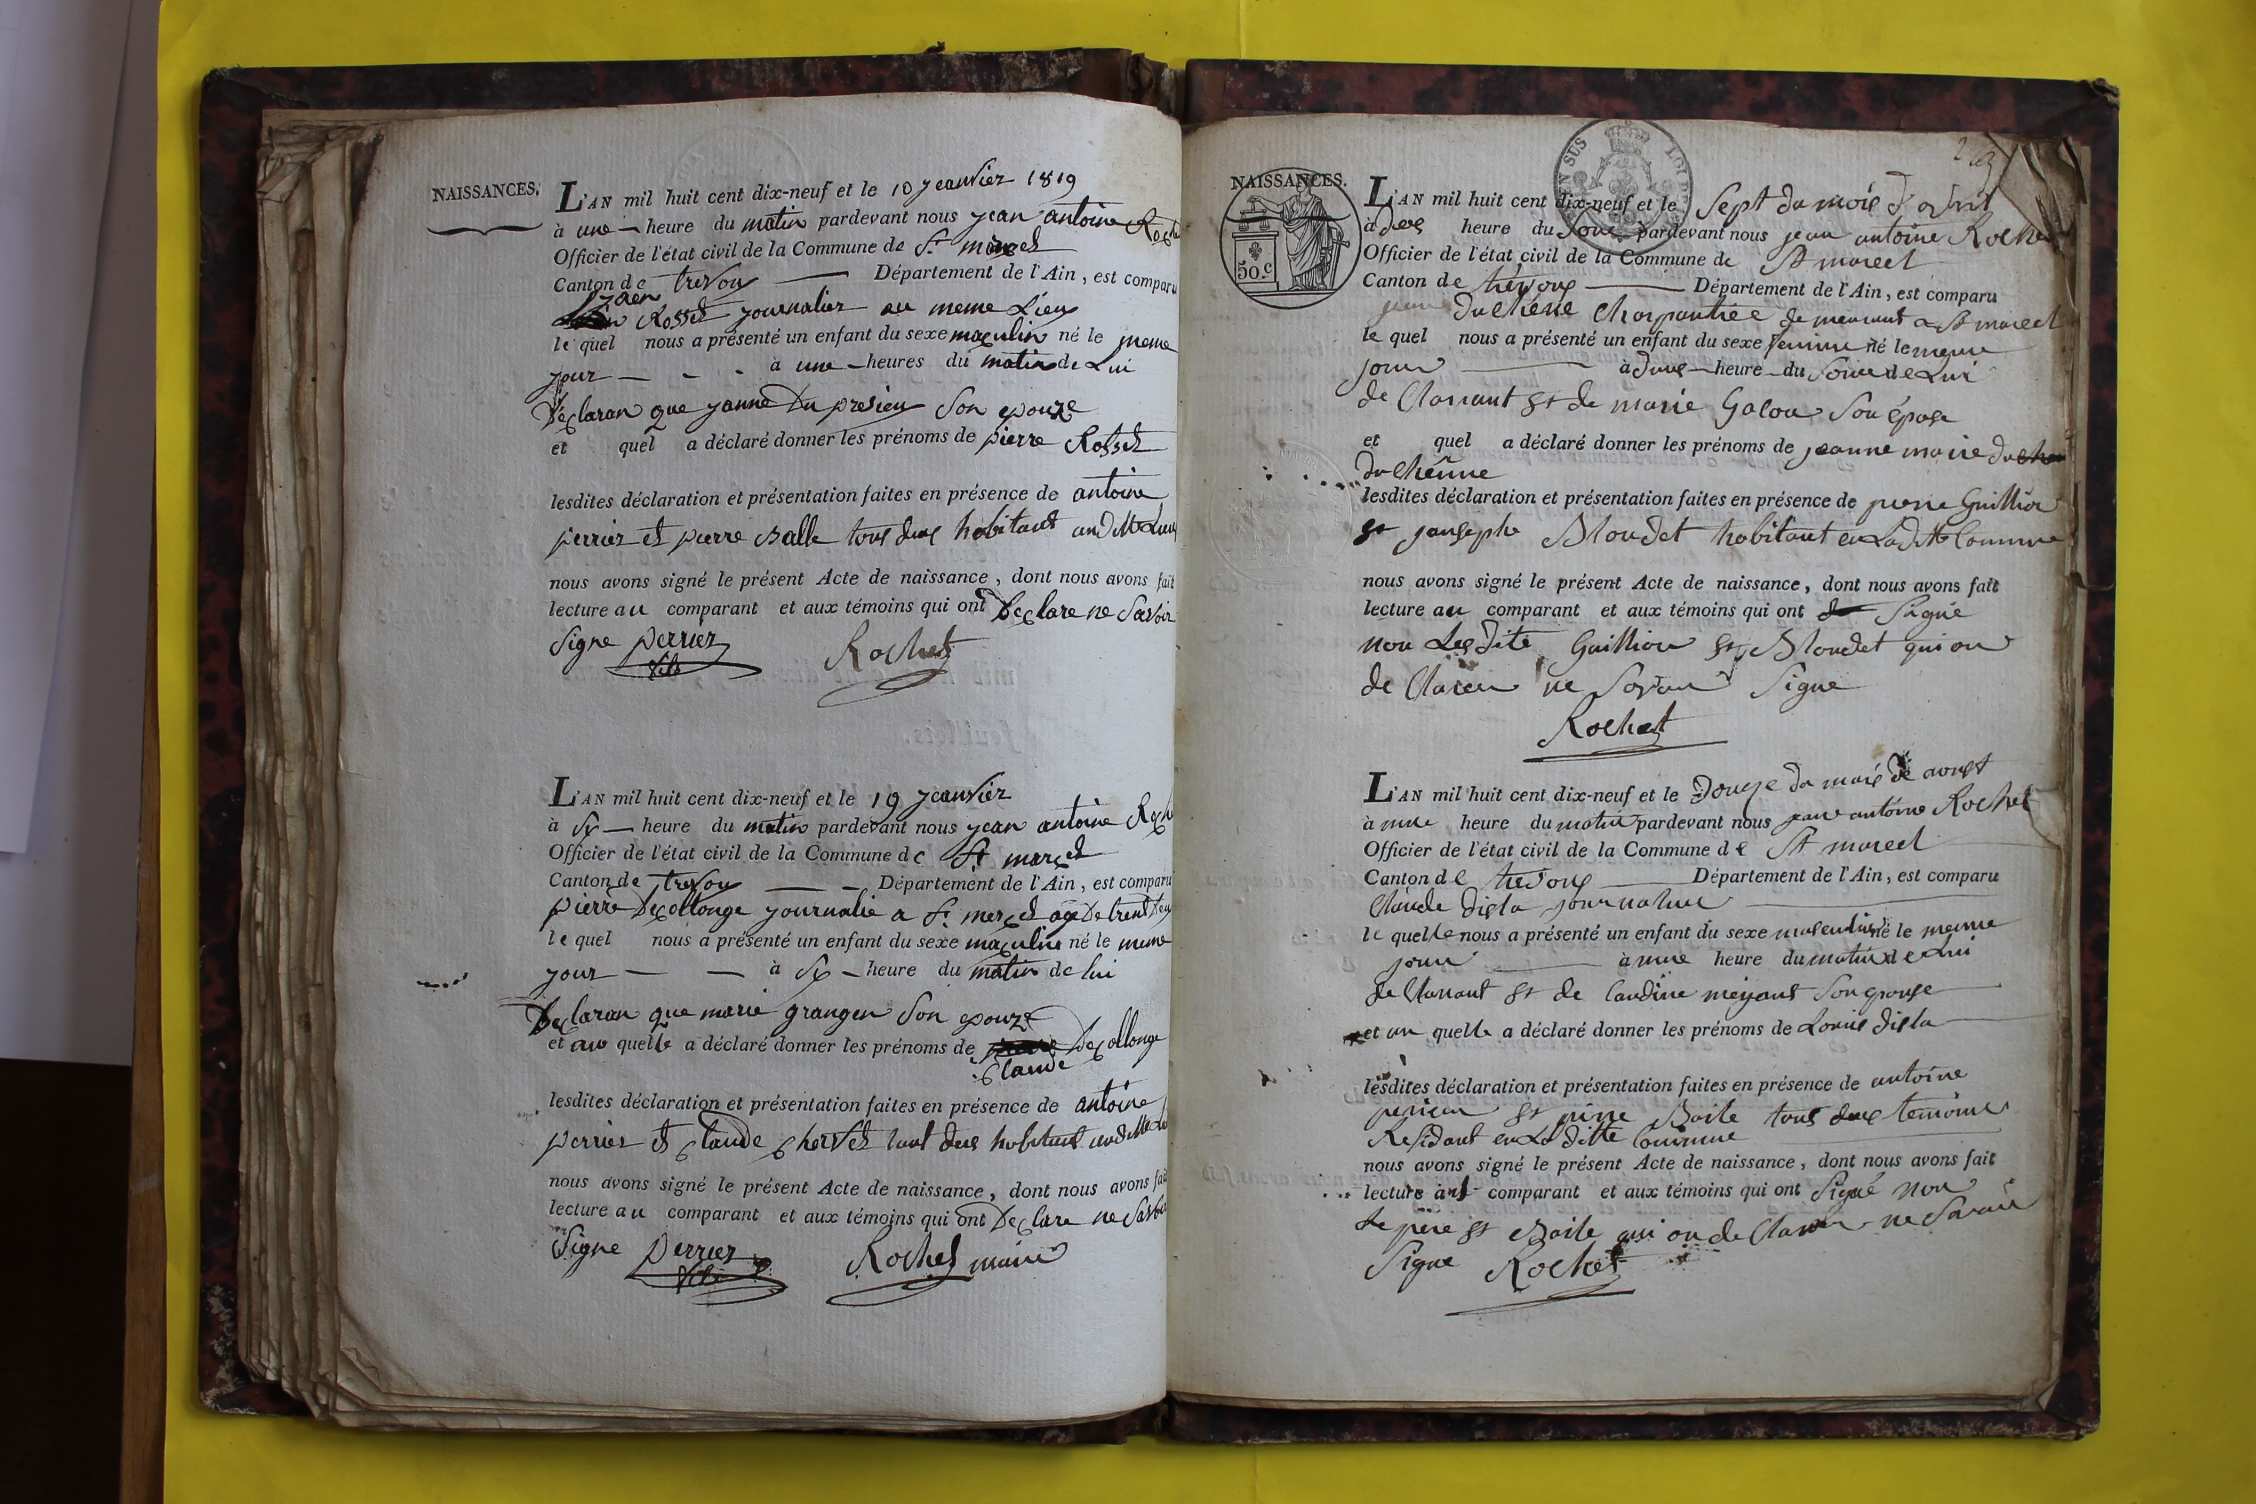 NAISSANCES.
L'AN mil huit cent dix-neuf et le 10 jeanvier 1819
à une heure du matin pardevant nous jean antoine
Officier de l'état civil de la Commune de St marcel
Canton de trevou Département de l'Ain, est comparu
Rosset journalier au meme Lieu
le quel nous a présenté un enfant du sexe masculin né le meme
jour à une heures du matin de Lui
Declaran que janne Du presieu Son epouze
et quel a déclaré donner les prénoms de pierre Rosset
lesdites déclaration et présentation faites en présence de antoine
perrier et pierre Balle tous deus habitant
nous avons signé le présent Acte de naissance, dont nous avons fait
lecture au comparant et aux témoins qui ont Declare ne Savoir
Signe perrier
Rochet
L'AN mil huit cent dix-neuf et le 19 jeanvier
à heure du matin pardevant nous jean antoine
Officier de l'état civil de la Commune de St marcel
Canton de trevou Département de l'Ain, est comparu
pierre Decollonge journalié a St mercel agé De trent
le quel nous a présenté un enfant du sexe masculin né le meme
jour à heure du matin de lui
Declaran que marie grangen Son epouze
et au quelle a déclaré donner les prénoms de Decollonge
Claude
lesdites déclaration et présentation faites en présence de antoine
perrier et Claude Chervet tout deus habitant
nous avons signé le présent Acte de naissance, dont nous avons fait
lecture au comparant et aux témoins qui ont Declare ne
Signe Perrier
Rochet maire
NAISSANCES.
50.c
L'AN mil huit cent dix-neuf et le Sept du mois d'avril
à heure du Soir pardevant nous jean antoine Rochet
Officier de l'état civil de la Commune de St marcel
Canton de trevoux Département de l'Ain, est comparu
duchéne Charpantiée de meurant a St marcel
le quel nous a présenté un enfant du sexe né le meme
jour à heure du Soir de Lui
de Clarant et de marie Galou Son épose
et quel a déclaré donner les prénoms de jeanne marie
du Chênne
lesdites déclaration et présentation faites en présence de pierre Guillion
et jouseph Blondet habitant en Laditte Commune
nous avons signé le présent Acte de naissance, dont nous avons fait
lecture au comparant et aux témoins qui ont Signé
non Lesdite Guillion et Blondet qui on
de Claren ne Savan Signe
Rochet
L'AN mil huit cent dix-neuf et le Douze du mois de aoust
à heure du matin pardevant nous jean antoine Rochet
Officier de l'état civil de la Commune de St marcel
Canton de trevoux Département de l'Ain, est comparu
Claude disla journalier
le quelle nous a présenté un enfant du sexe masculin né le meme
jour à heure du matin de Lui
de Clarant et de Claudine meyant Son epouse
et au quelle a déclaré donner les prénoms de Louis disla
lesdites déclaration et présentation faites en présence de antoine
et pirre Baile tous deus temoins
Residant en Laditte Commune
nous avons signé le présent Acte de naissance, dont nous avons fait
lecture comparant et aux témoins qui ont Signé non
Le père et Baile qui on de Clarer ne Savoir
Signe Rochet